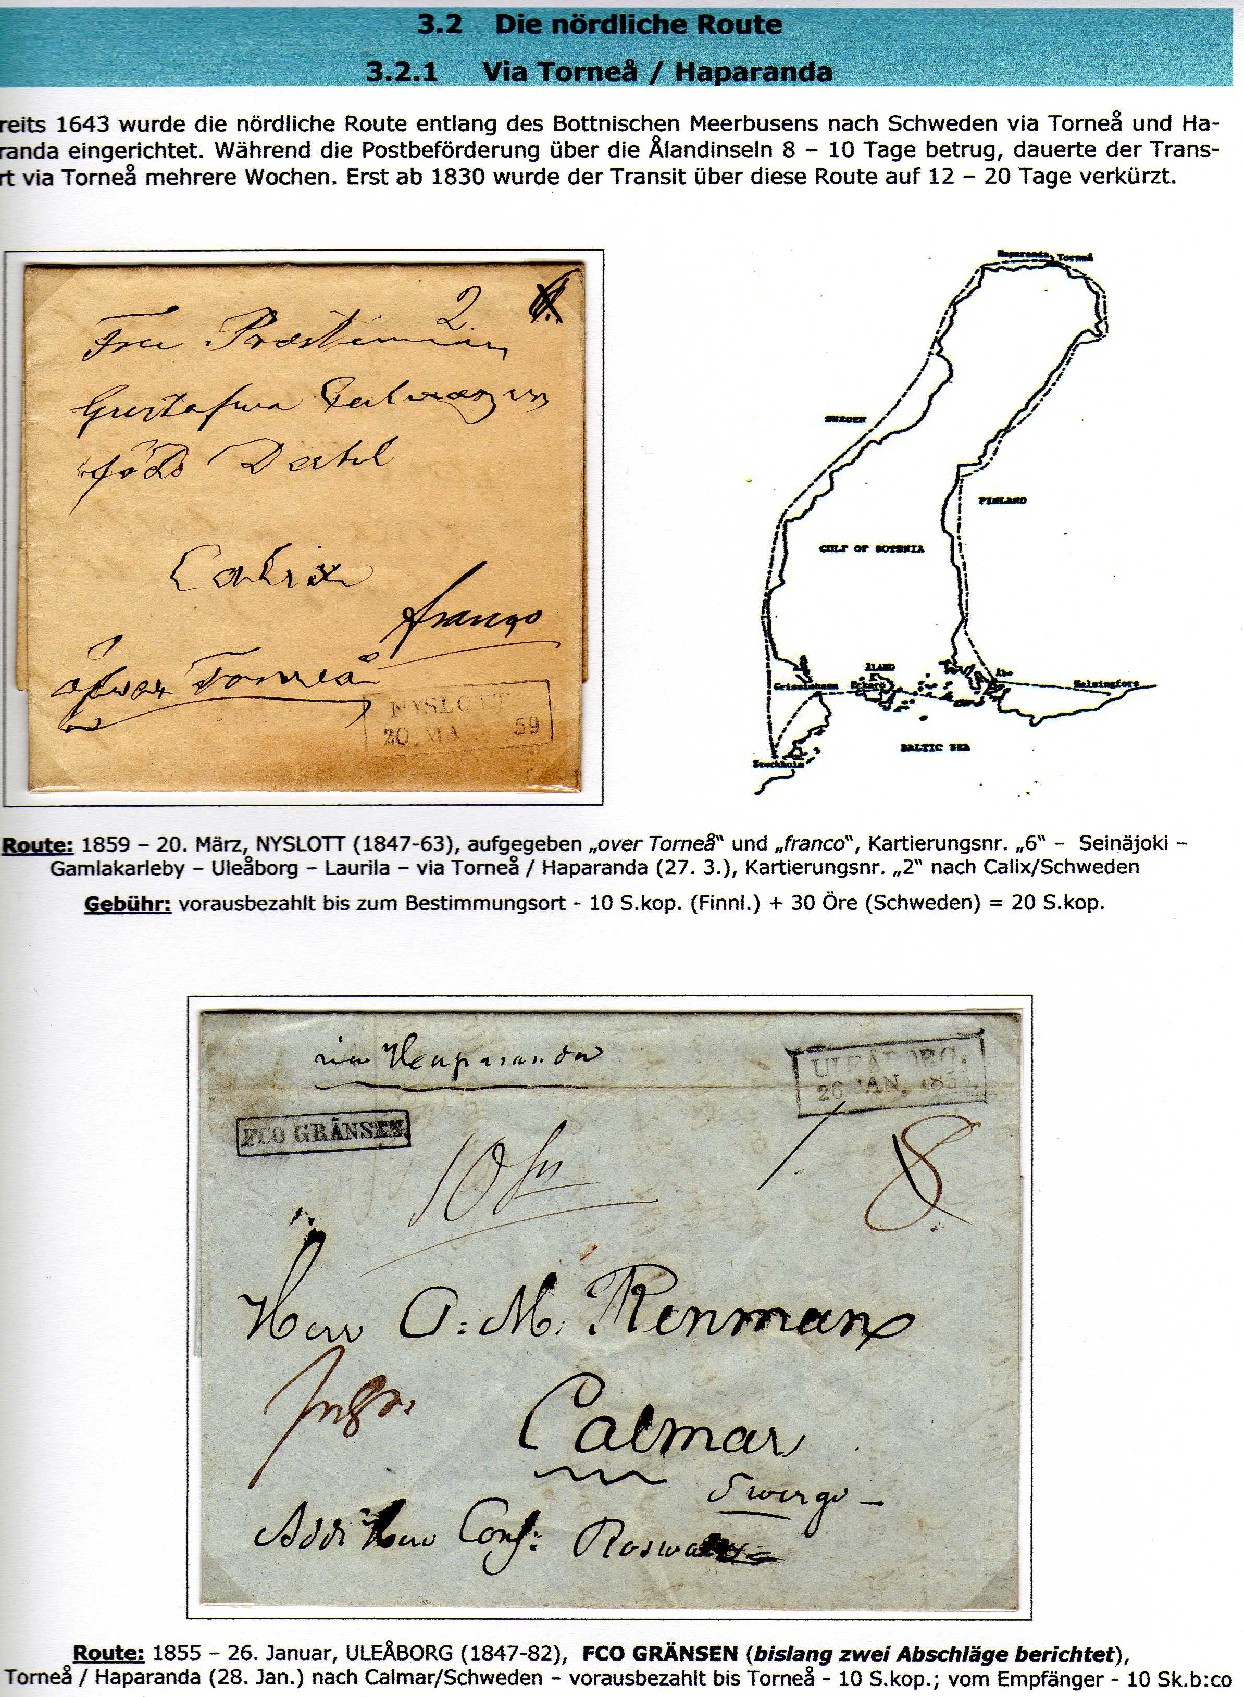 3.2 Die nördliche Route
3.2.1 Via Torneå / Haparanda
reits 1643 wurde die nördliche Route entlang des Bottnischen Meerbusens nach Schweden via Torneå und Ha-
randa eingerichtet. Während die Postbeförderung über die Ålandinseln 8 – 10 Tage betrug, dauerte der Trans-
rt via Torneå mehrere Wochen. Erst ab 1830 wurde der Transit über diese Route auf 12 – 20 Tage verkürzt.
2.
Fru Prostinnan
Gustafwa
född
Calix
franco
öfver Torneå
NYSLOTT
20 MA 59
Haparanda Torneå
SWEDEN
FINLAND
GULF OF BOTHNIA
ÅLAND
Åbo
Grisslehamn Eckerö Helsingfors
BALTIC SEA
Stockholm
Route: 1859 – 20. März, NYSLOTT (1847-63), aufgegeben „over Torneå“ und „franco“, Kartierungsnr. „6“ – Seinäjoki –
Gamlakarleby – Uleåborg – Laurila – via Torneå / Haparanda (27. 3.), Kartierungsnr. „2“ nach Calix/Schweden
Gebühr: vorausbezahlt bis zum Bestimmungsort - 10 S.kop. (Finnl.) + 30 Öre (Schweden) = 20 S.kop.
via Haparanda
ULEÅBORG.
26 JAN. 185
FCO GRÄNSEN
10
8
Herr O: M: Renman
Calmar
Swerge
Add: Herr Cons:
Route: 1855 – 26. Januar, ULEÅBORG (1847-82), FCO GRÄNSEN (bislang zwei Abschläge berichtet),
Torneå / Haparanda (28. Jan.) nach Calmar/Schweden – vorausbezahlt bis Torneå - 10 S.kop.; vom Empfänger - 10 Sk.b:co